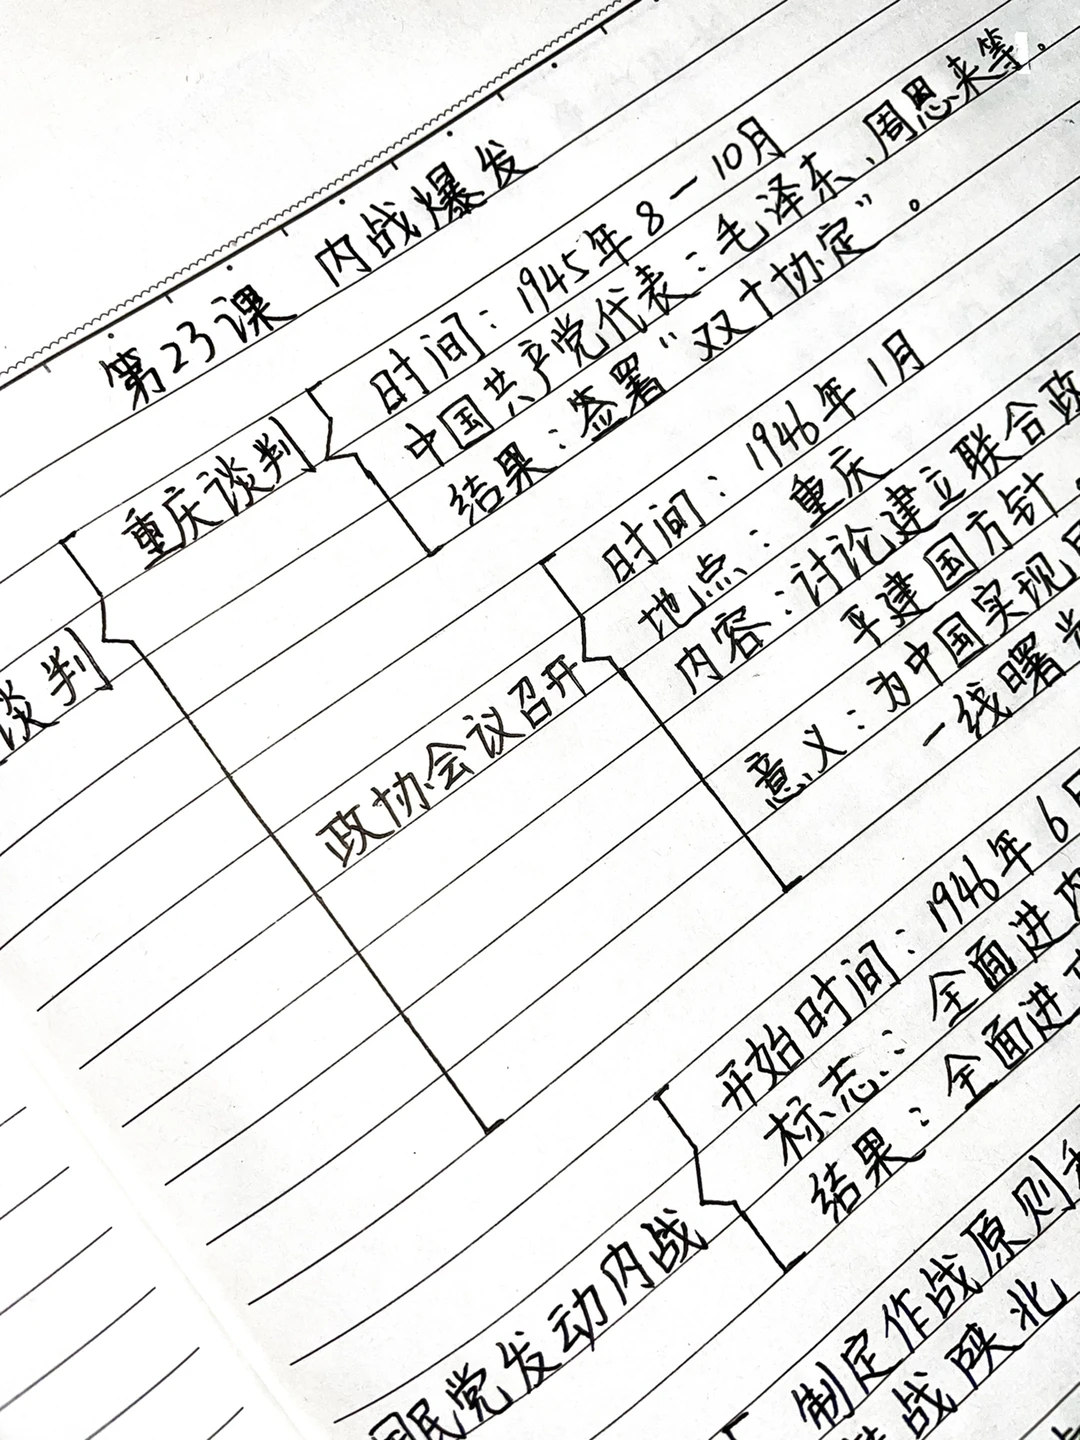 第23课 内战爆发
重庆谈判
时间：1945年8一10月
中国共产党代表：毛泽东、周恩来等。
结果：签署"双十协定"。
谈判
政协会议召开
时间：1946年1月
地点：重庆
内容：讨论建立联合政
平建国方针。
意义：为中国实现
一线曙光
国民党发动内战
开始时间：1946年6月
标志：全面进
结果：全面进
制定作战原则
战陕北